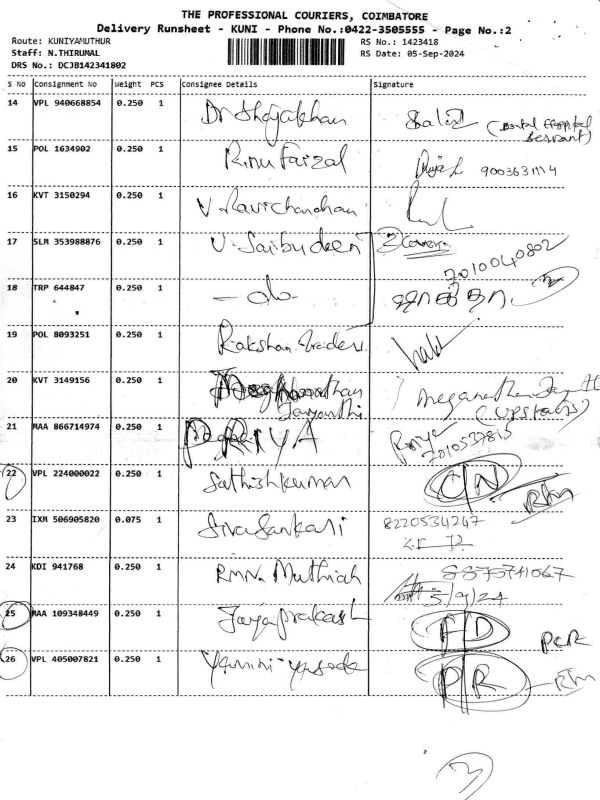 THE PROFESSIONAL COURIERS, COIMBATORE
Delivery Runsheet - KUNI - Phone No.:0422-3505555 - Page No.:2
Route: KUNIYAMUTHUR RS No.: 1423418
Staff: N.THIRUMAL RS Date: 05-Sep-2024
DRS No.: DCJB142341802
S No Consignment No Weight PCS Consignee Details Signature
14 VPL 940668854 0.250 1 (Dental Hospital
Servant)
15 POL 1634902 0.250 1 Rinu Faizal
16 KVT 3150294 0.250 1 V. Ravichandran
17 SLM 353988876 0.250 1 V. Saibudeen 2 Covers
7010040802
18 TRP 644847 0.250 1 - do -
19 POL 8093251 0.250 1 Rakshan Traders
20 KVT 3149156 0.250 1 Jayanthi
(upstairs)
21 MAA 866714974 0.250 1 PRIYA Priya
22 VPL 224000022 0.250 1 Sathishkumar C/N
23 IXM 506905820 0.075 1 Sivasankari 8220534247
24 KDI 941768 0.250 1 RMN. Muthiah 8875741067
5/9/24
25 MAA 109348449 0.250 1 Jayaprakash F/D
26 VPL 405007821 0.250 1 Yamini Yasoda P/R
3